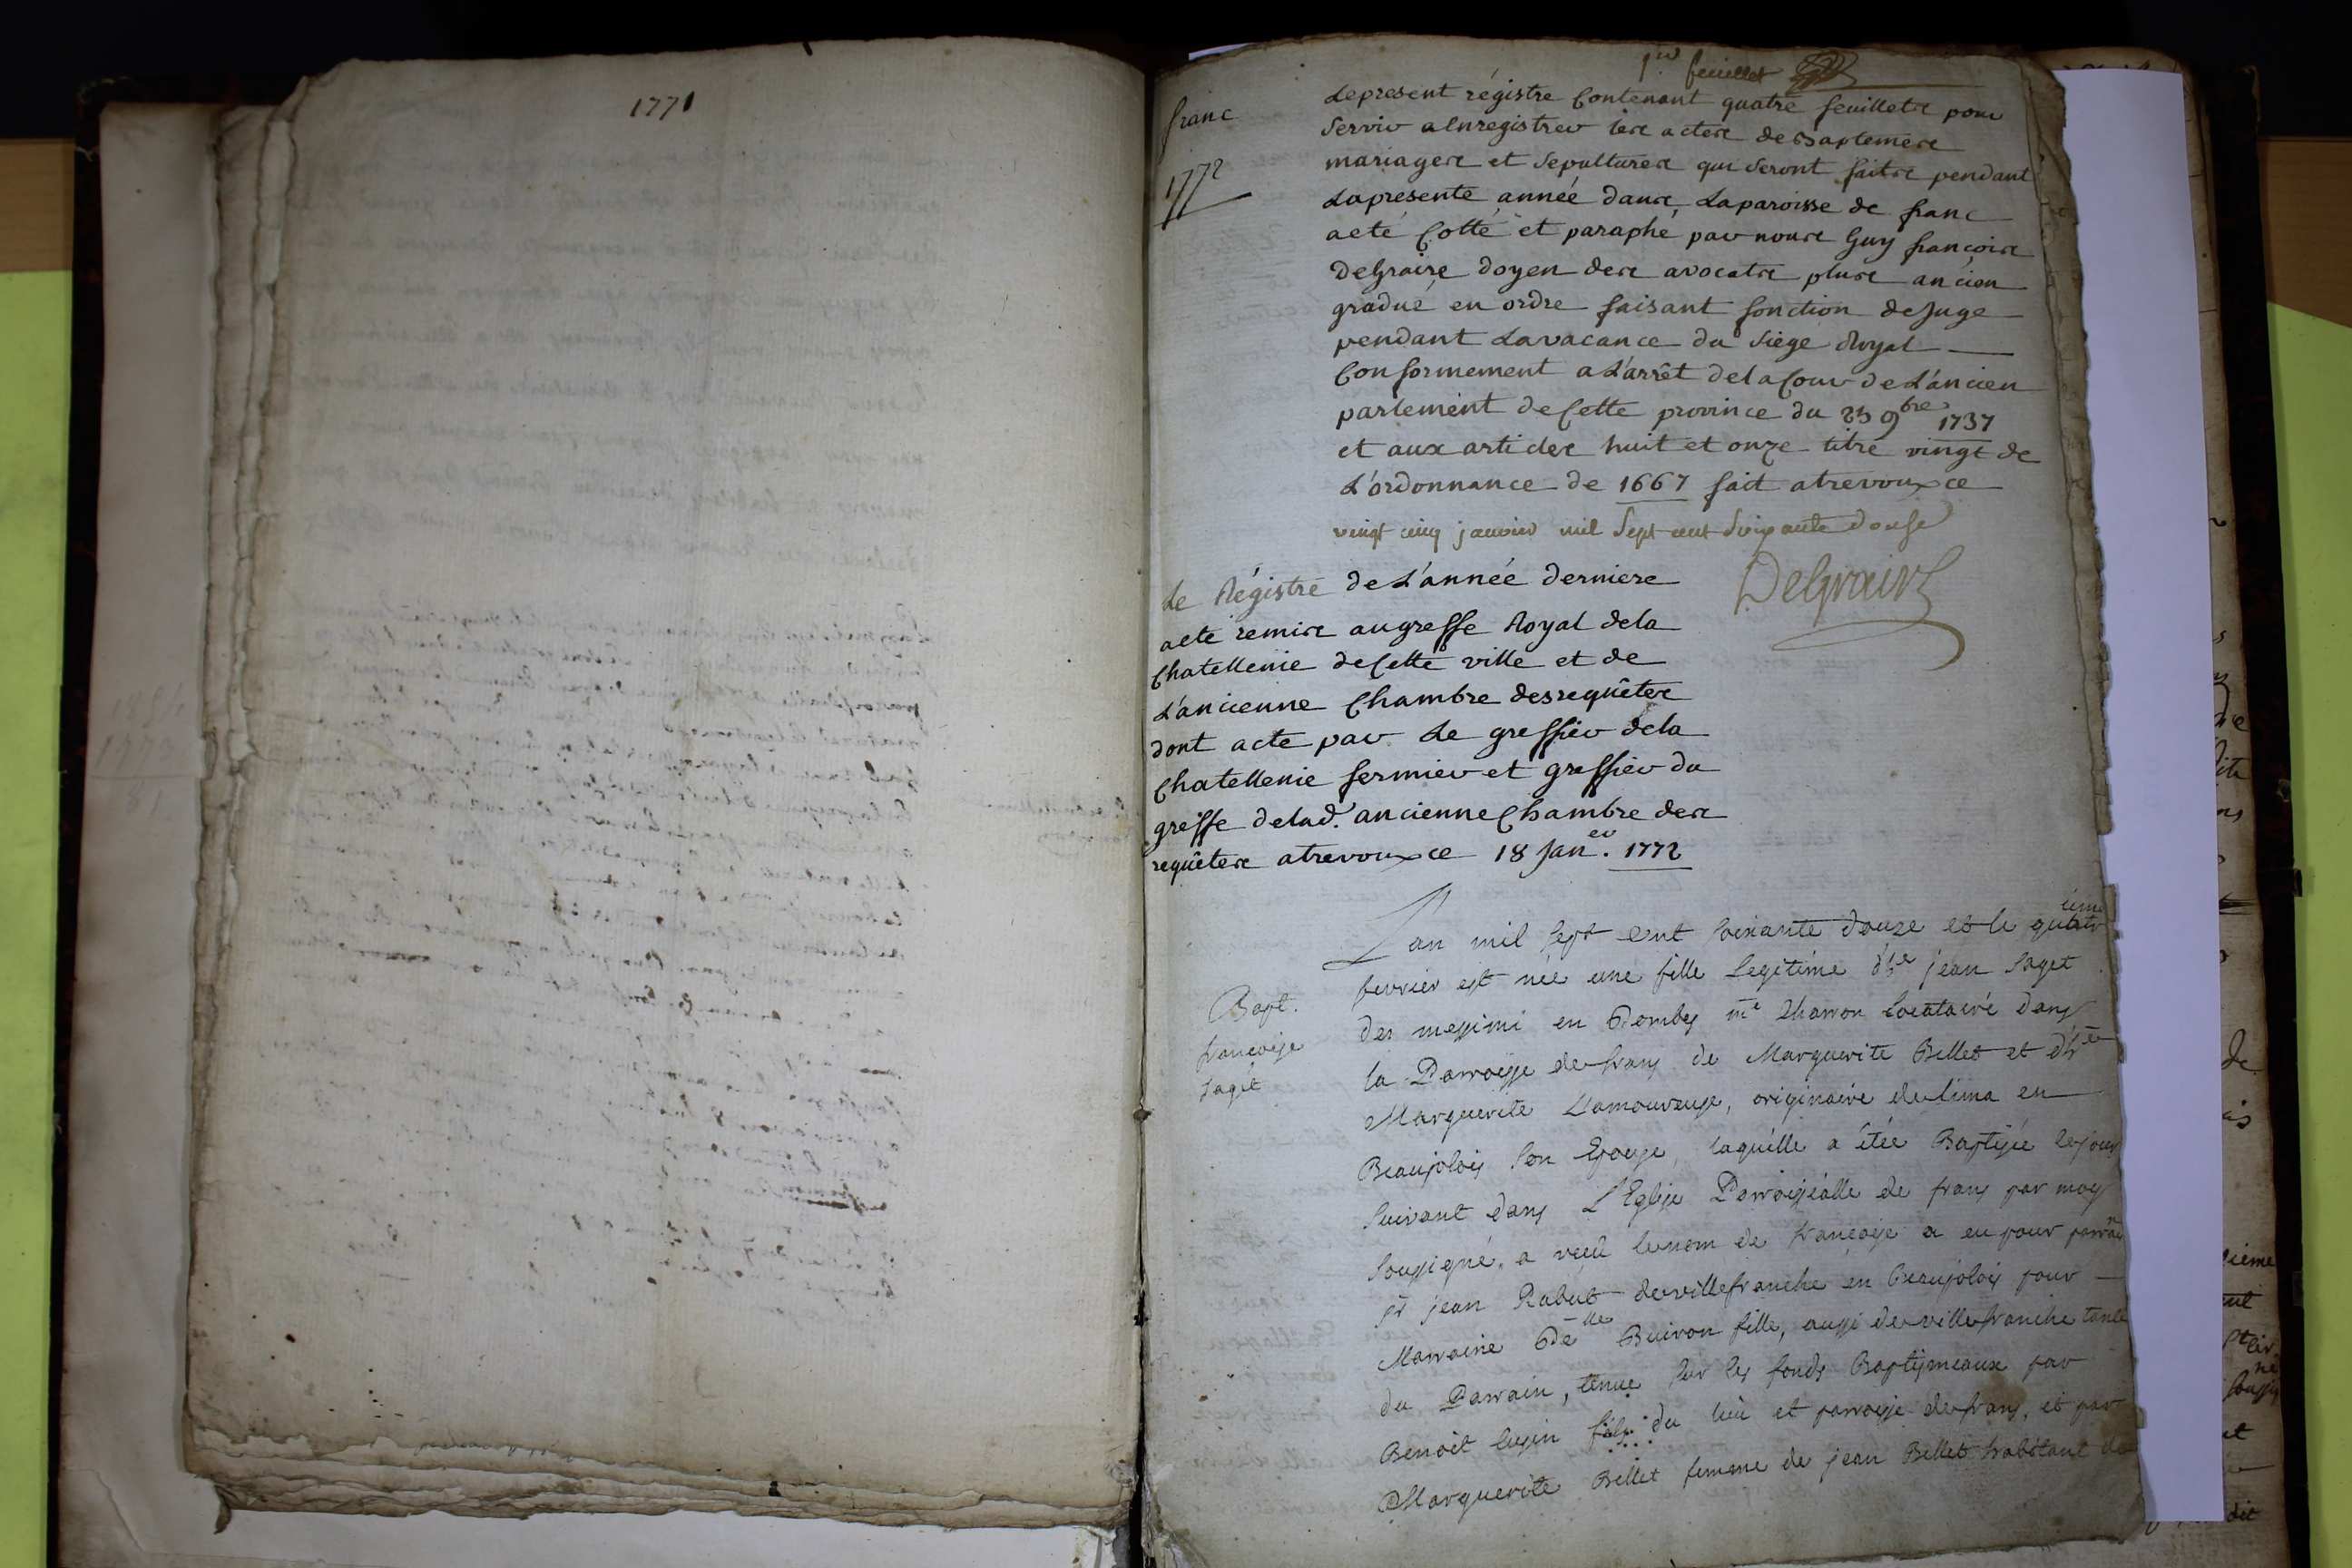 1771
1er feuillet
franc
1772
Le present régistre Contenant quatre feuillets pour
Servir a Enregistrer les actes de Baptemes
mariages et Sepultures qui Seront faits pendant
La presente année dans La paroisse de franc
a eté Cotté et paraphé par nous Guy françois
DeGraire doyen des avocats plus ancien
gradué en ordre faisant fonction de Juge
pendant La vacance du Siege Royal
Conformement a L'arrêt de la Cour de L'ancien
parlement de Cette province du 23 9bre 1737
et aux articles huit et onze titre vingt de
L'ordonnance de 1667 fait a trevoux ce
vingt cinq janvier mil Sept cent Soixante douse
Le Régistre de L'année derniere
a eté remis au greffe Royal de la
Chatellenie de Cette ville et de
L'ancienne Chambre des requêtes
dont acte par Le greffier de la
Chatellenie fermier et greffier du
greffe de lad. ancienne Chambre des
requêtes a trevoux ce 18 Janer. 1772
L'an mil sept cent soixante douze et le quatrieme
fevrier est née une fille Legitime d'he jean Saget
Bapt.
francoise
Saget
des messimi en Dombes me Charron Locataire dans
la Parroisse de frans de Marguerite Billet et d'h
Marguerite Lamoureuse, originaire de lima en
Beaujolois son Epouse, laquelle a êtée Baptisée le jour
suivant dans L'Eglise Parroissialle de frans par moy
soussigné, a recu le nom de francoise a eu pour parrain
sr jean Rabut de villefranche en Beaujolois pour
Marraine Delle Buiron fille, aussi de villefranche tante
du Parrain, tenue sur les fonds Baptismeaux par
Benoit fils du lieu et parroisse de frans, et par
Marguerite Billet femme de jean Billet habitant de